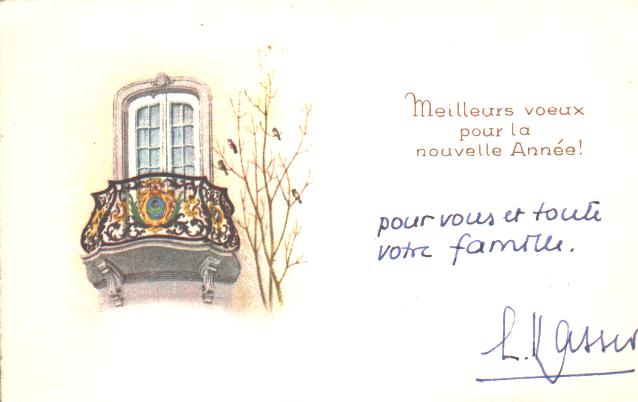 Meilleurs voeux
pour la
nouvelle Année!
pour vous et toute
votre famille.